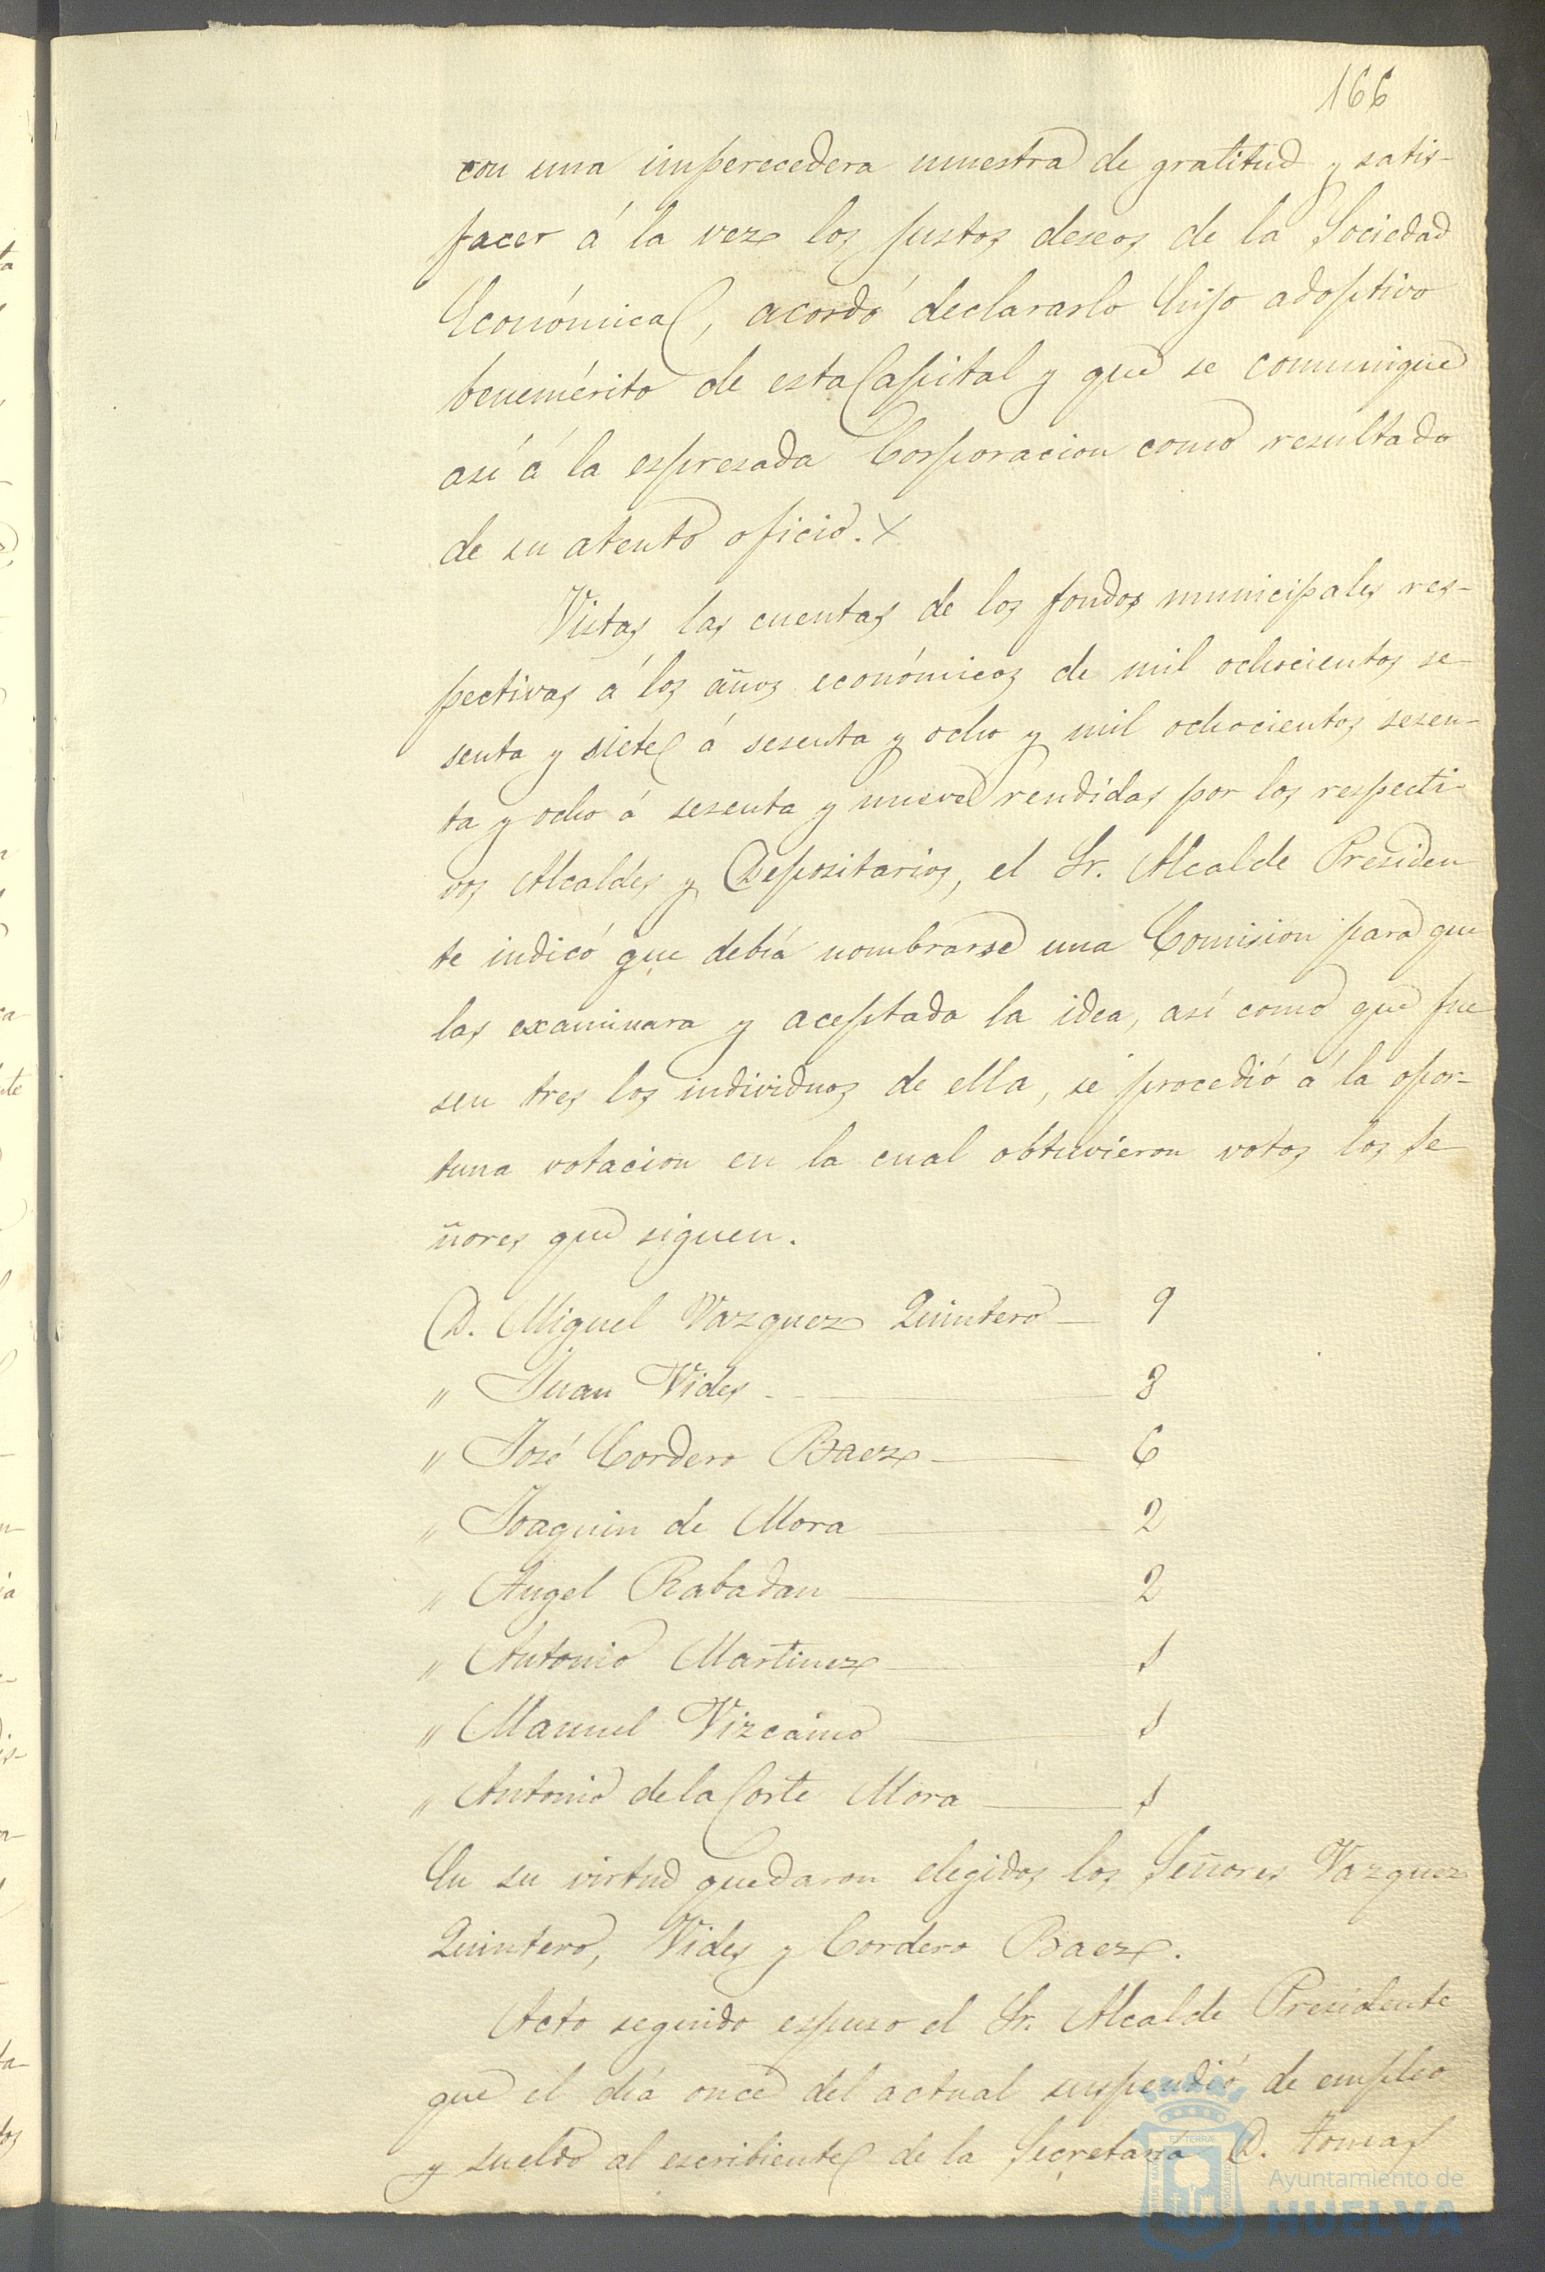 166
con una imperecedera muestra de gratitud y satis-
facer á la vez los justos deseos de la Sociedad
Económica, acordó declararlo hijo adoptivo
benemérito de esta Capital y que se comunique
así á la espresada Corporacion como resultado
de su atento oficio. X
Vistas las cuentas de los fondos municipales res-
pectivas á los años económicos de mil ochocientos se-
senta y siete á sesenta y ocho y mil ochocientos sesen-
ta y ocho á sesenta y nueve rendidas por los respecti-
vos Alcaldes y Depositarios, el Sr. Alcalde Presiden-
te indicó que debia nombrarse una Comision para que
las examinara y aceptada la idea, así como que fue
sen tres los individuos de ella, se procedió á la opor-
tuna votacion en la cual obtuvieron votos los Se-
ñores que siguen.
D. Miguel Vazquez Quintero — 9
" Juan Vides — 8
" José Cordero Baez — 6
" Joaquin de Mora — 2
" Angel Rabadan — 2
" Antonio Martinez — 1
" Manuel Vizcaino — 1
" Antonio de la Corte Mora — 1
En su virtud quedaron elegidos los Señores Vazquez
Quintero, Vides y Cordero Baez.
Acto seguido espuso el Sr. Alcalde Presidente
que el dia once del actual suspendió de empleo
y sueldo al escribiente de la Secretaria D. Tomas
Ayuntamiento de
HUELVA